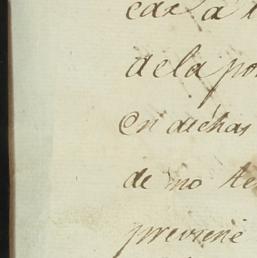 caz a
de la po
En dichas
de no te
previene